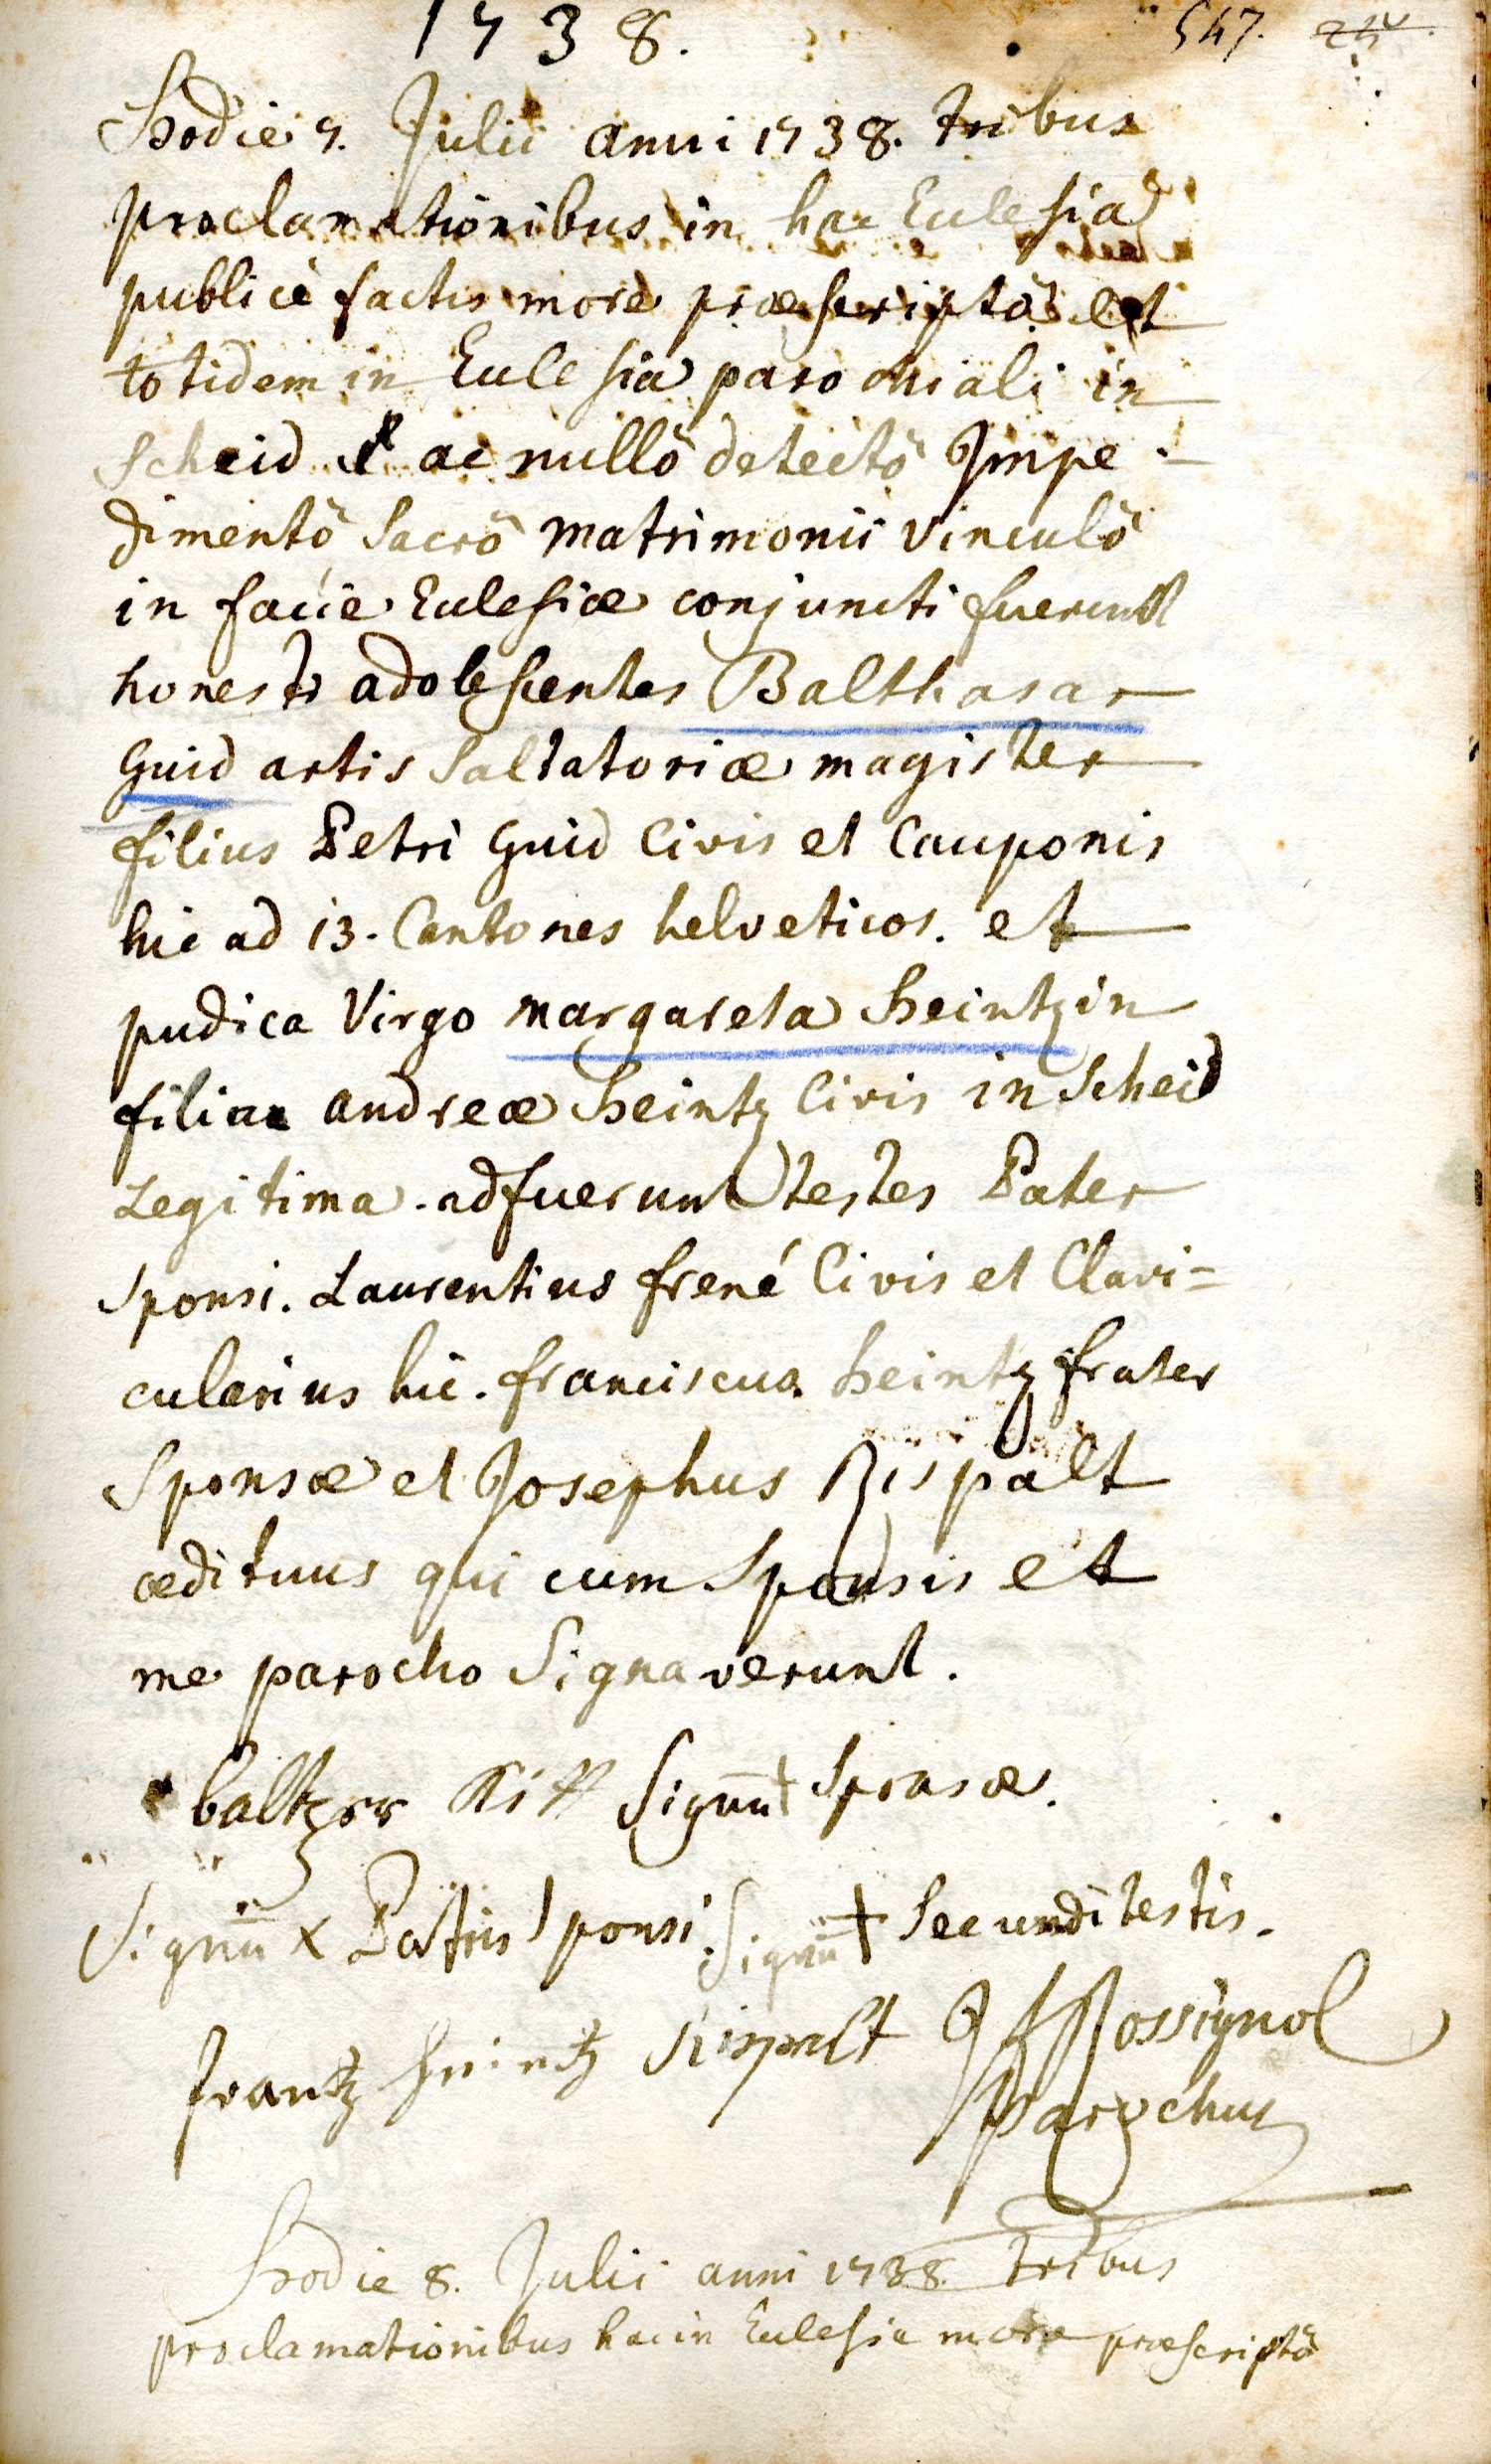 1738.
547.
Hodie 7. Julii anni 1738. tribus
proclamationibus in hac Eclesia
publicè factis more præscriptô et
totidem in Eclesia parochiali in
Scheid ac nullô detectô Jmpe-
dimentô Sacrô Matrimonii Vinculô
in faciè Eclesiæ conjuncti fuerunt
honesti adolescentes Balthasar
Guid artis Saltatoriæ magister
filius Petri Guid Civis et Cauponis
hic ad 13. Cantones helveticos. et
pudica Virgo Margareta Heintzin
filia Andreæ Heintz Civis in Scheid
Legitima. adfuerunt testes Pater
Sponsi. Laurentius frené Civis et Clavi=
cularius hic. franciscus Heintz frater
Sponsæ et Josephus Rispalt
ædituus qui cum Sponsis et
me parocho Signaverunt.
baltzer Kitt Signū + Sponsæ.
Signū x Patris Sponsi. Signū + Secundi testis.
frantz Heintz Rispalt J f Rossignol
Parochus
Hodie 8. Julii anni 1738. tribus
proclamationibus hac in Eclesia more præscriptô